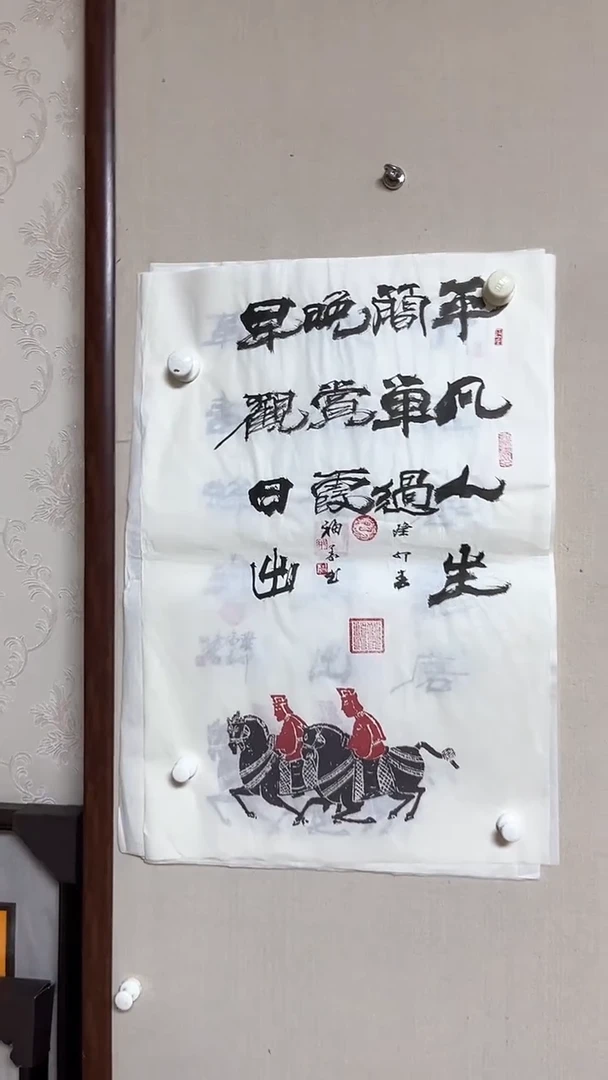 平凡人生
簡單過
癸卯春
晚賞霞
早觀日出